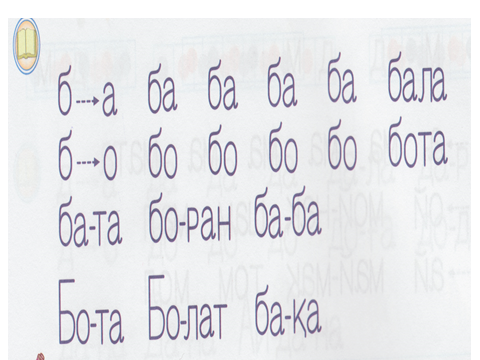 б--→а ба ба ба ба бала
б--→о бо бо бо бо бота
ба-та бо-ран ба-ба
Бо-та Бо-лат ба-қа